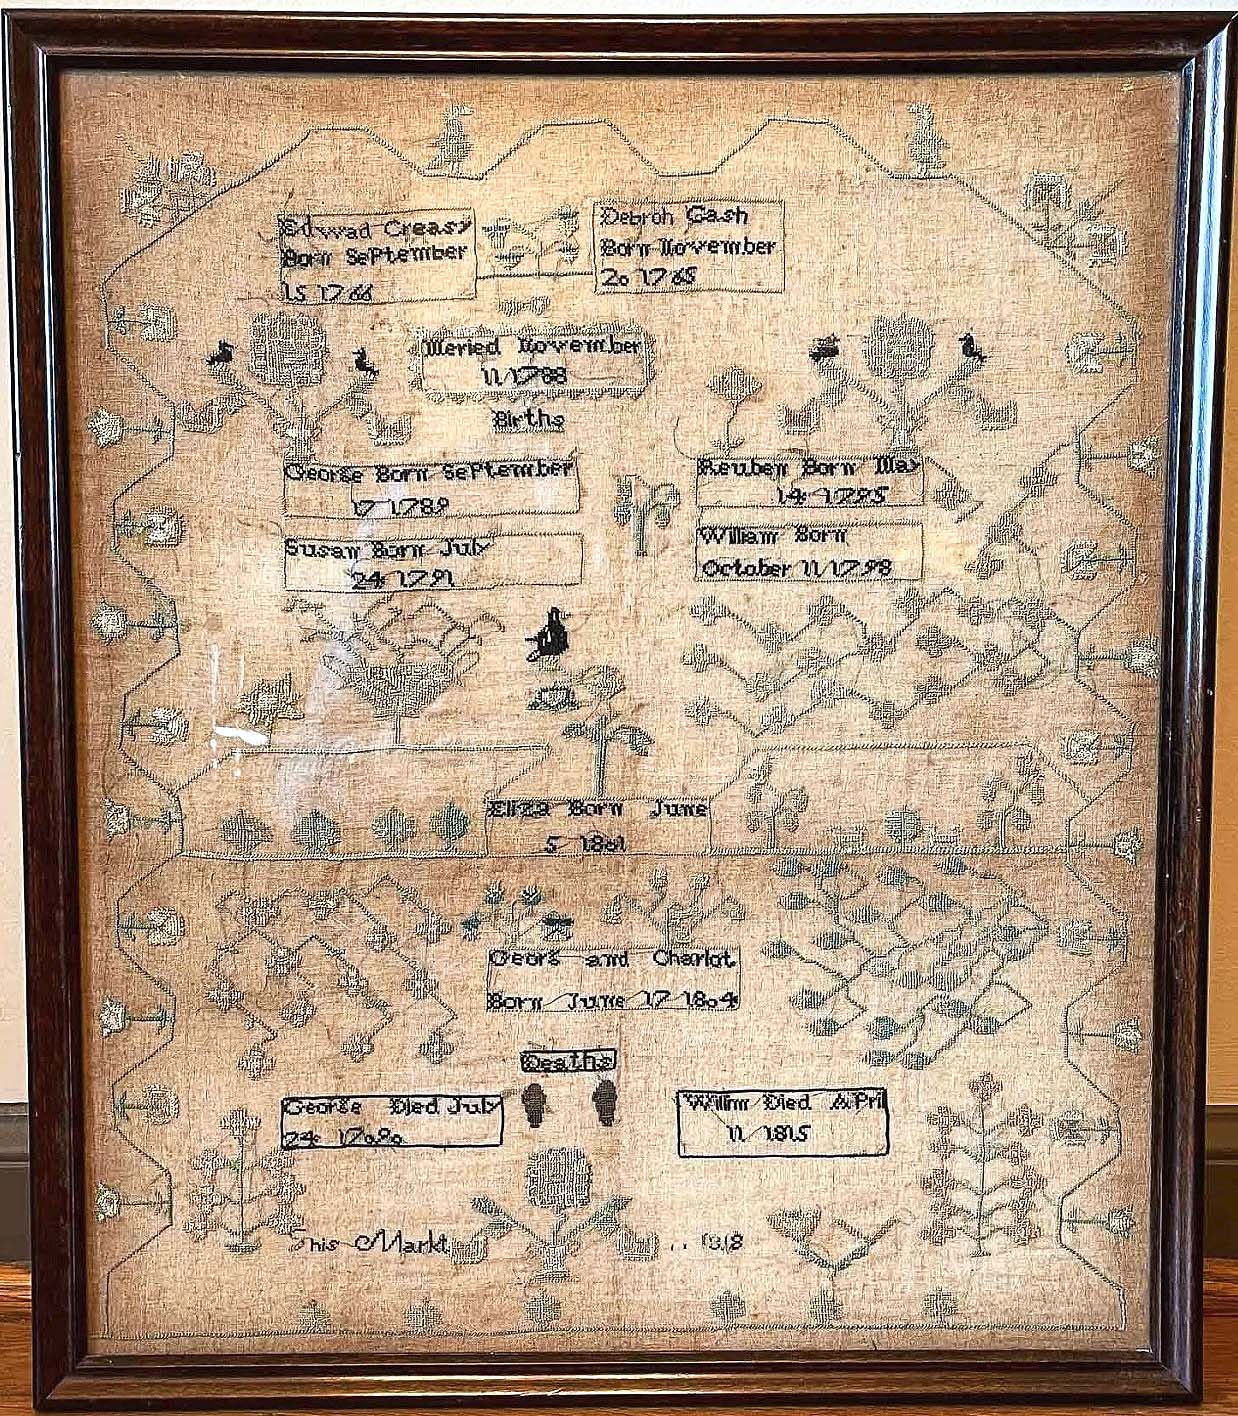 Edwad Creasy
Born SePtember
15 1766
Debroh Cash
Born November
20 1768
Meried November
11 1788
Births
George Born SePtember
17 1789
Susan Born July
24 1791
Reuben Born May
14 1795
William Born
October 11 1798
Eliza Born June
5 1801
Georg and Charlot
Born June 17 1804
Deaths
George Died July
24
Willim Died APril
11 1815
This Markt
1818